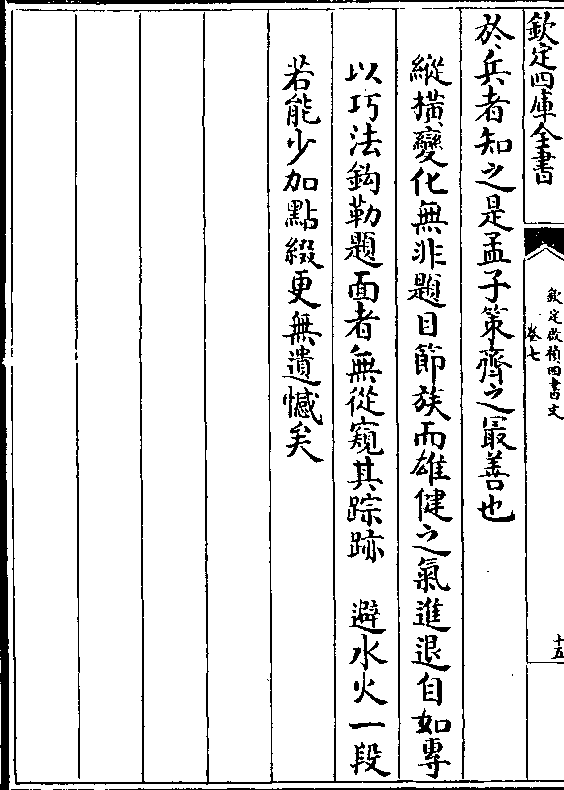 欽定四庫全書
欽定啟禎四書文
卷七
十五
於兵者知之是孟子策齊之最善也
縱橫變化無非題目節族而雄健之氣進退自如專
以巧法鈎勒題面者無從窺其踪跡　避水火一段
若能少加點綴更無遺憾矣